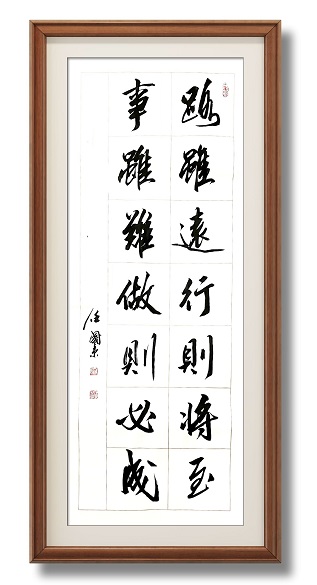 路雖遠行則將至
事雖難做則必成
任國東